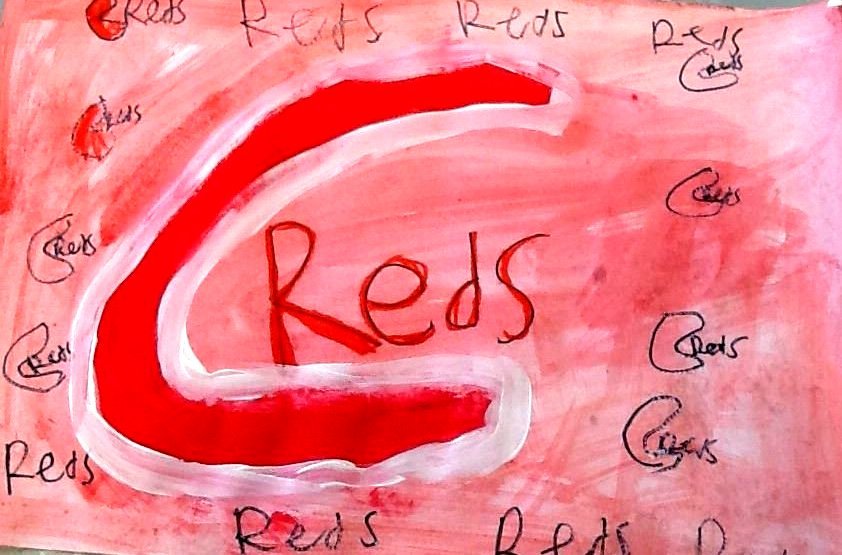 C Reds Reds Reds Reds
C Reds
C Reds
C Reds
C Reds
C Reds
C Reds
C Reds
C Reds
Reds
Reds Reds R